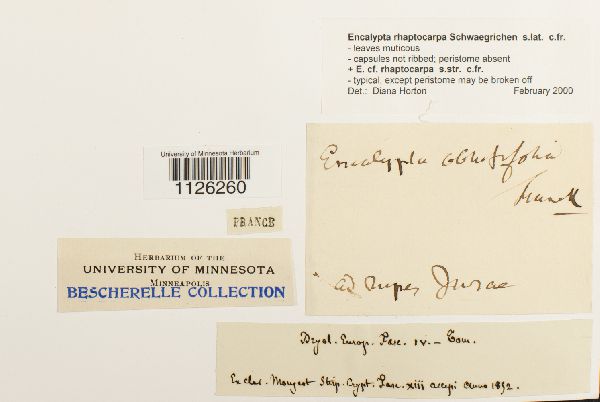 Encalypta rhaptocarpa Schwaegrichen s.lat. c.fr.
- leaves muticous
- capsules not ribbed; peristome absent
+ E. cf. rhaptocarpa s.str. c.fr.
- typical, except peristome may be broken off
Det.: Diana Horton February 2000
University of Minnesota Herbarium
1126260
FRANCE
HERBARIUM OF THE
UNIVERSITY OF MINNESOTA
MINNEAPOLIS
BESCHERELLE COLLECTION
Encalypta obtusifolia
Funck
ad rupes Jurae
Bryol. Europ. Fasc. IV. - Tom.
Ex clar. Mougeot Stirp. Crypt. Fasc. xiii accepi anno 1852.